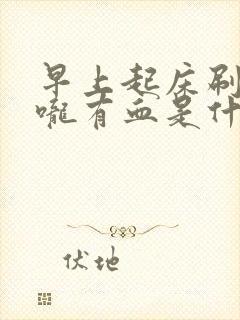 早上起床刷
嚨有血是什
伏地